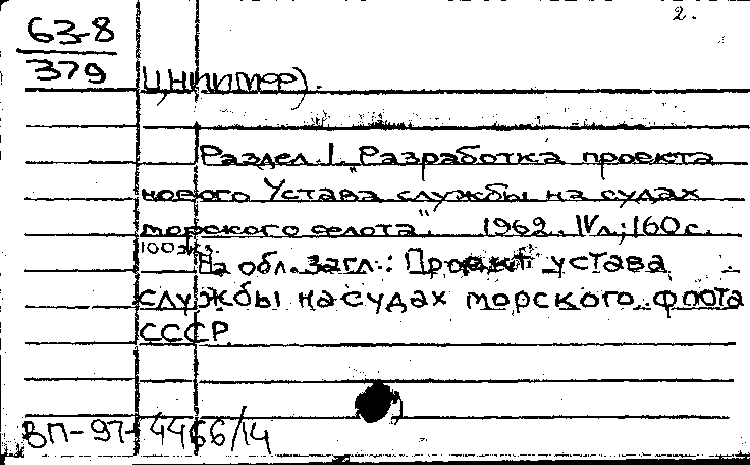 2.
63-8
379
ЦНИИМФ).
Раздел I. "Разработка проекта
нового Устава службы на судах
морского флота". 1962. IV л.; 160 с.
100 экз.
На обл. загл.: Проект устава
службы на судах морского флота
СССР.
ВП-97-4466/14